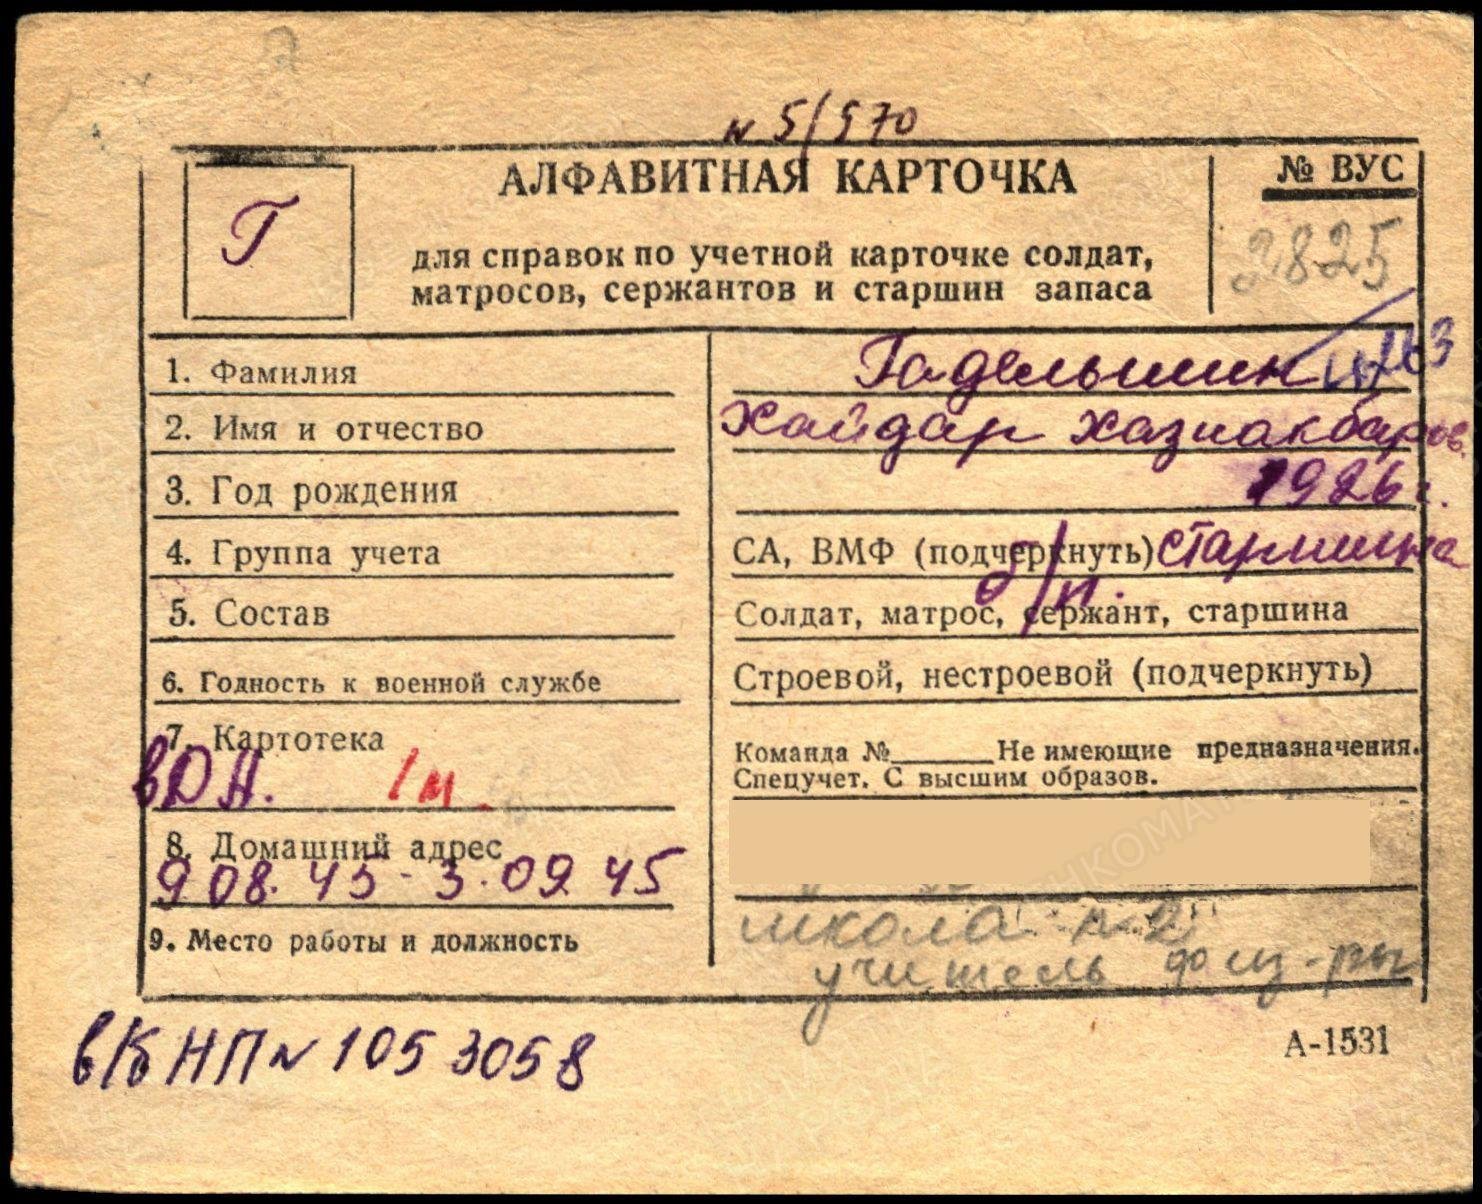 7
№ 5/570
Г
АЛФАВИТНАЯ КАРТОЧКА
для справок по учетной карточке солдат,
матросов, сержантов и старшин запаса
№ ВУС
2825
1. Фамилия Гадельшин
2. Имя и отчество Хайдар Хазиакбаров.
3. Год рождения 1926 г.
4. Группа учета СА, ВМФ (подчеркнуть) старшина
5. Состав Солдат, матрос, сержант, старшина
б/п.
6. Годность к военной службе Строевой, нестроевой (подчеркнуть)
7. Картотека Команда №______ Не имеющие предназначения.
Спецучет. С высшим образов.
1м.
8. Домашний адрес
9.08.45-3.09.45
9. Место работы и должность школа №2
учитель физ-ры
в/б НП № 1053058
А-1531